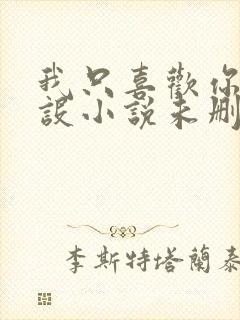 我只喜歡你
設小說未刪
李斯特塔蘭泰